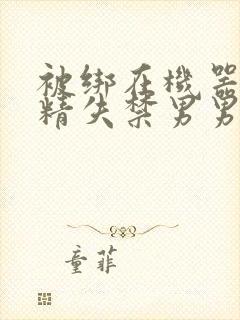 被绑在机器
精失禁男男
童菲